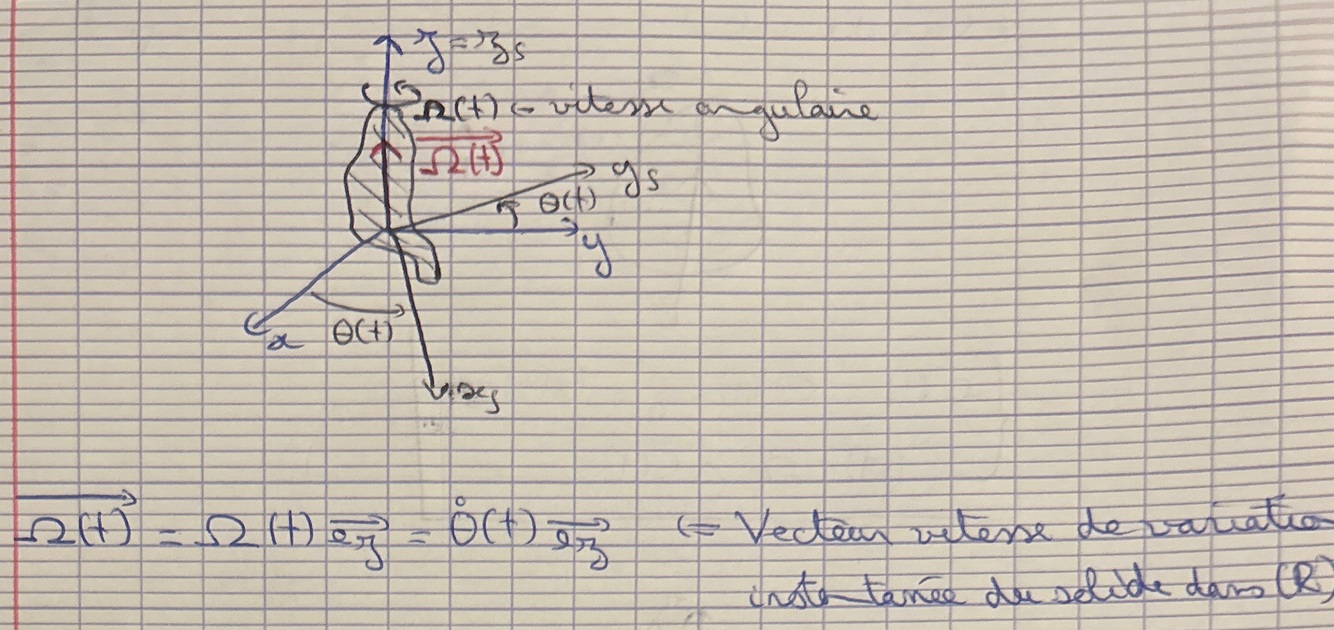 z = zs
Ω(t) ← vitesse angulaire
Ω(t)
ys
θ(t)
y
x
θ(t)
xs
Ω(t) = Ω(t) ez = θ̇(t) ez ⇐ Vecteur vitesse de variation
instantanée du solide dans (R)